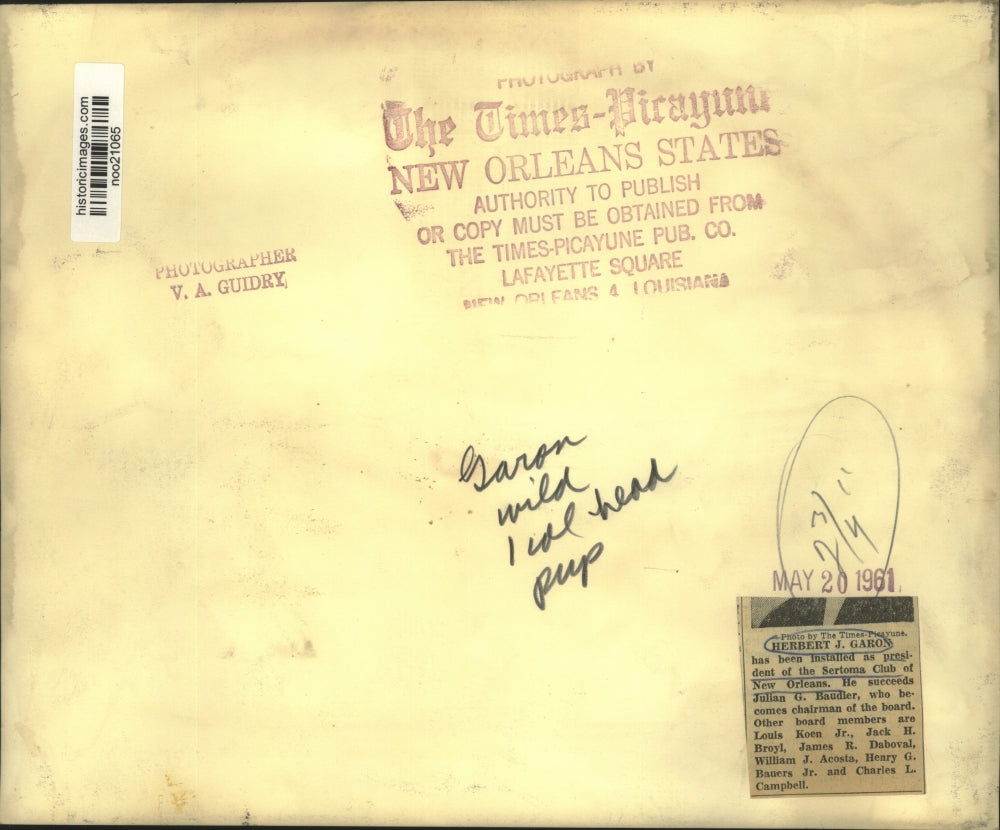 historicimages.com
noo21065
PHOTOGRAPH BY
The Times-Picayune
NEW ORLEANS STATES
AUTHORITY TO PUBLISH
OR COPY MUST BE OBTAINED FROM
THE TIMES-PICAYUNE PUB. CO.
LAFAYETTE SQUARE
NEW ORLEANS 4 LOUISIANA
PHOTOGRAPHER
V. A. GUIDRY
Garon
wild
1 col head
pup
MAY 20 1961
Photo by The Times-Picayune.
HERBERT J. GARON
has been installed as presi-
dent of the Sertoma Club of
New Orleans. He succeeds
Julian G. Baudier, who be-
comes chairman of the board.
Other board members are
Louis Koen Jr., Jack H.
Broyl, James R. Daboval,
William J. Acosta, Henry G.
Bauers Jr. and Charles L.
Campbell.